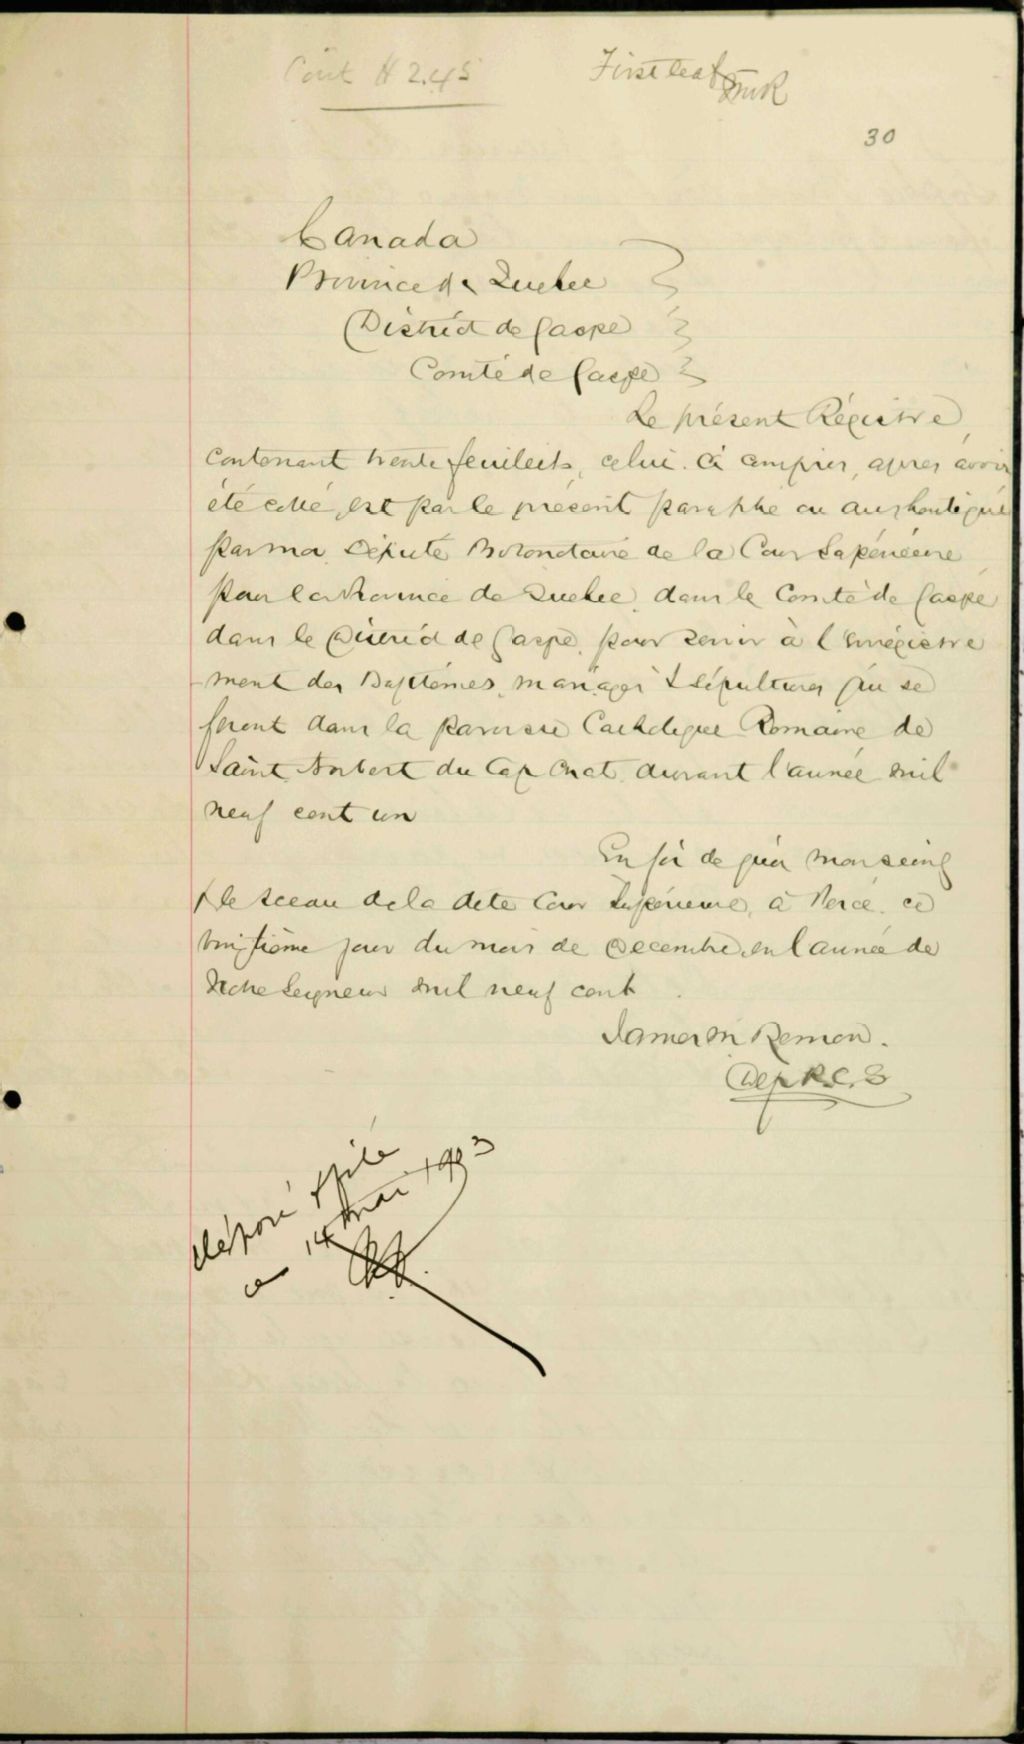 Cout # 2.45
First leaf JMR
30
Canada
Province de Quebec
District de Gaspe
Comté de Gaspe
Le présent Régistre,
contenant trente feuillets, celui-ci compris, apres avoir
été coté, est par le présent paraphé ou authentiqué
par moi Député Protonotaire de la Cour Supérieure
pour la Province de Quebec, dans le Comté de Gaspé
dans le District de Gaspe, pour servir à l'enrégistre
ment des Baptêmes, mariages & sépultures qui se
feront dans la paroisse Catholique Romaine de
Saint Norbert du Cap Chat durant l'année mil
neuf cent un
En foi de quoi mon seing
& le sceau de la dite Cour Supérieure, à Percé, ce
vingtième jour du mois de Decembre, en l'année de
Notre Seigneur mil neuf cent
James M Remon.
Dep P.C.S
déposé & filé
ce 14 mai 1903